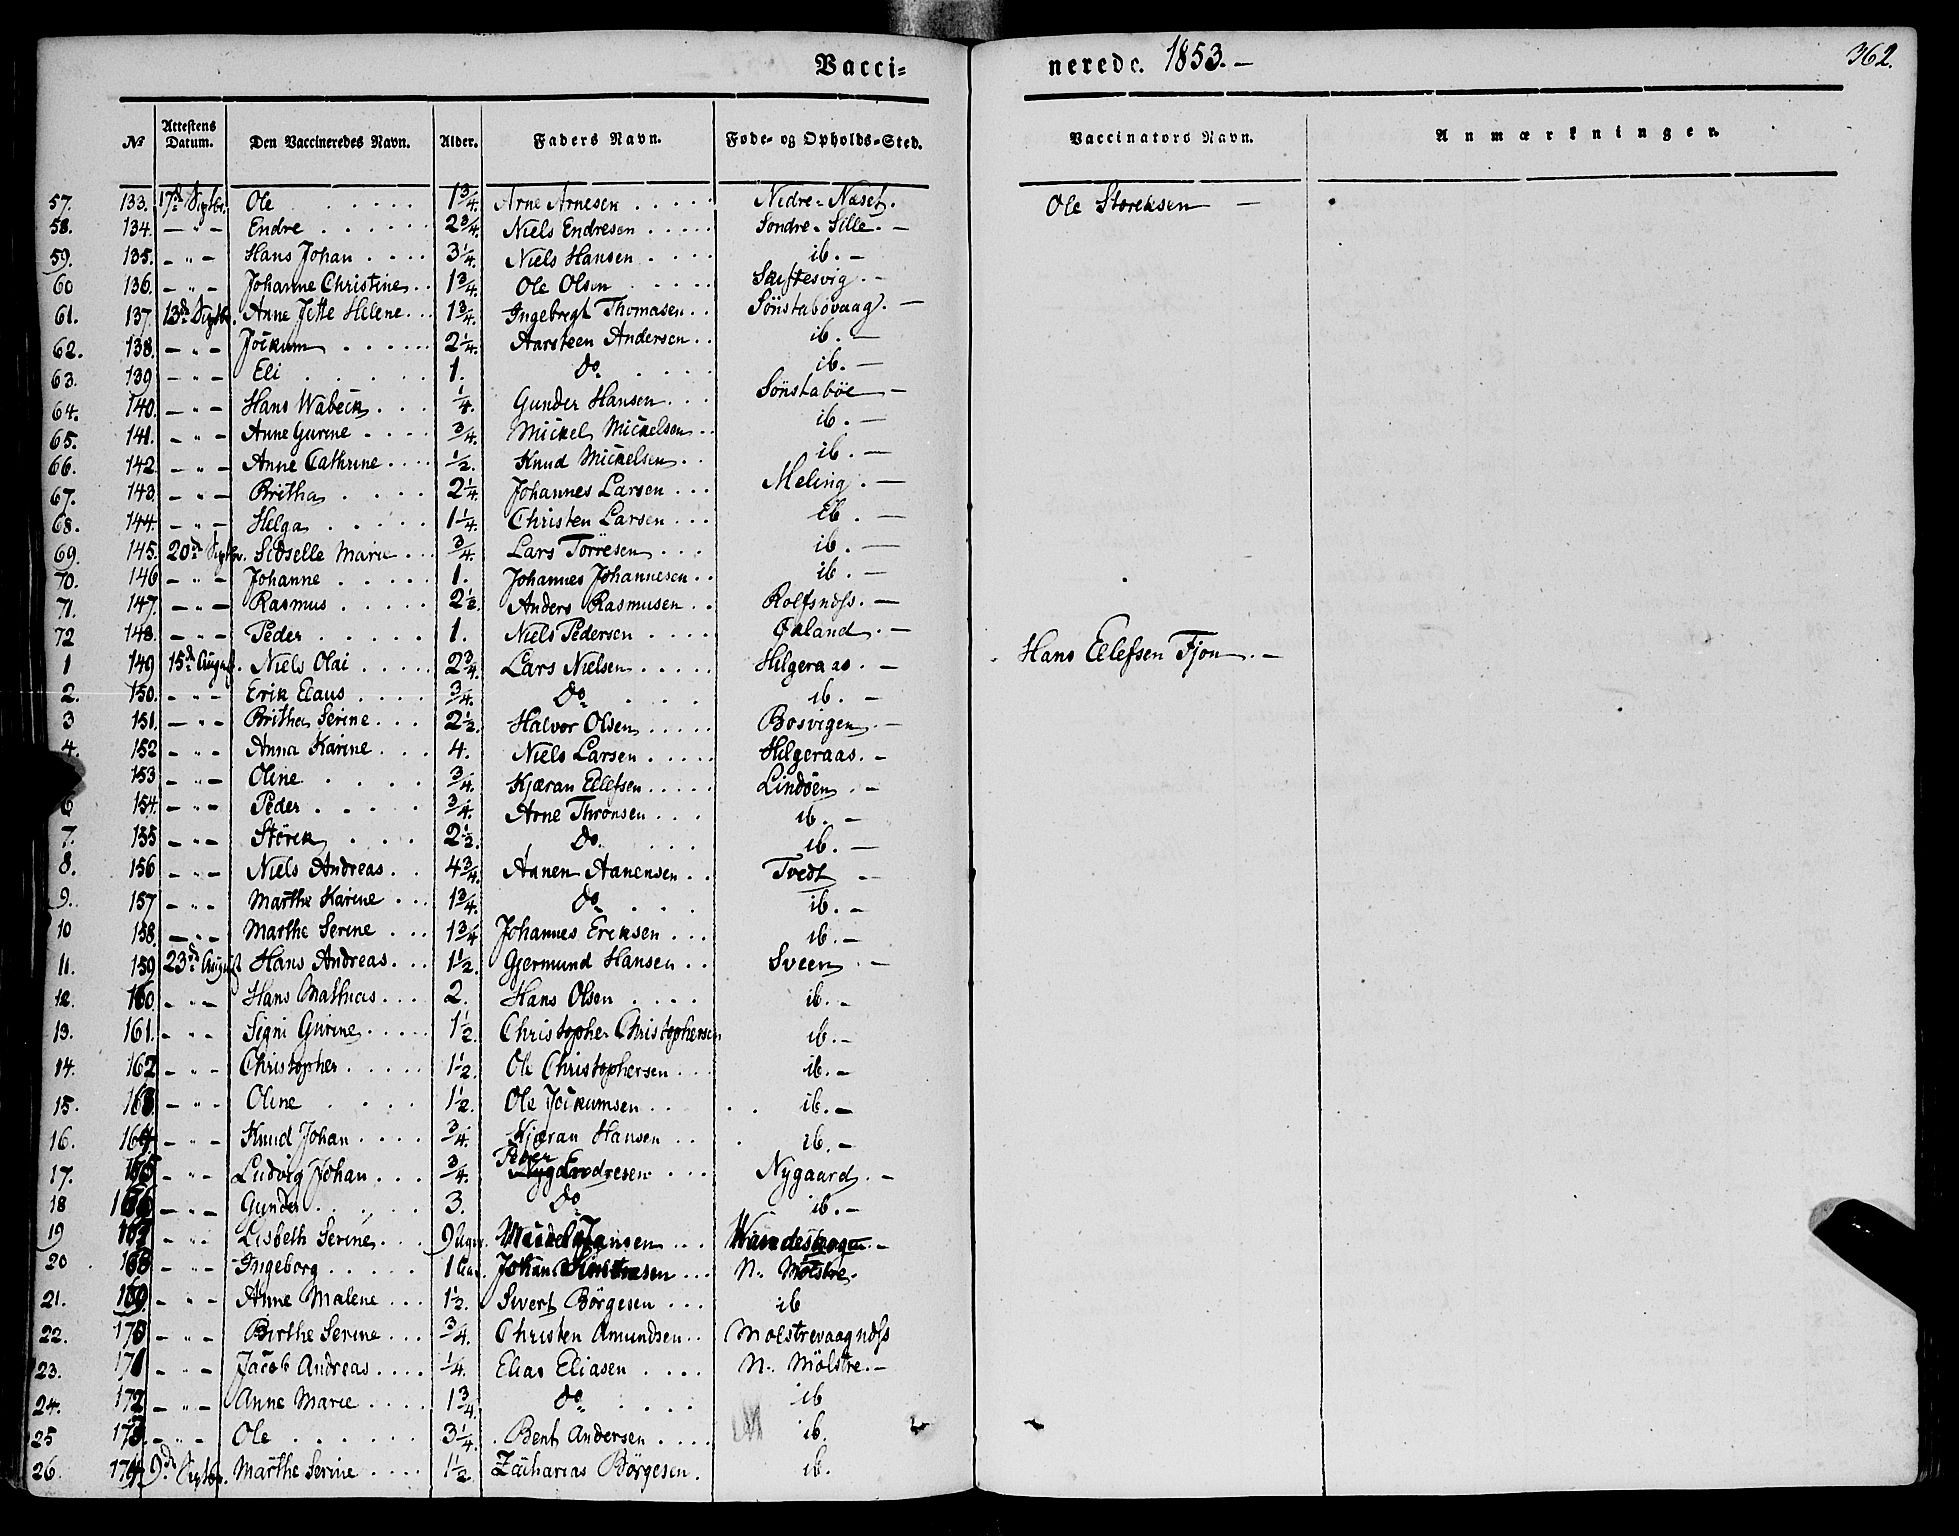 Vacci= nerede. 1853.— 362.
№ Attestens Datum. Den Vaccineredes Navn. Alder. Faders Navn. Føde- og Opholds-Sted. Vaccinators Navn. Anmærkninger.
57. 133. 17d Septbr. Ole 1 3/4. Arne Arnesen Nedre-Naset. Ole Storeksen —
58. 134. — " — Endre 2 3/4. Niels Endresen Söndre-Sille. —
59. 135. — " — Hans Johan 3 1/4. Niels Hansen ib. —
60 136. — " — Johanne Christine 1 3/4. Ole Olsen Skiftesvig. —
61. 137. 13d Septbr. Anne Jette Helene 1 3/4. Ingebregt Thomasen Sönstabövaag. —
62. 138. — " — Jöckum 2 1/4. Aarsteen Andersen ib. —
63. 139 — " — Eli 1. Do ib. —
64. 140. — " — Hans Wabeck 1/4. Gunder Hansen Sönstaböe —
65. 141. — " — Anne Gurine 3/4. Mickel Mickelsen ib. —
66. 142. — " — Anne Cathrine 1/2. Knud Mickelsen ib. —
67. 143 — " — Britha 2 1/4. Johannes Larsen Meling. —
68. 144. — " — Helga 1 1/4. Christen Larsen ib. —
69. 145. 20d Septbr. Sidselle Marie 3/4. Lars Törresen ib. —
70. 146 — " — Johanne 1. Johannes Johannesen ib. —
71. 147. — " — Rasmus 2 1/2. Anders Rasmusen Rolfsnds. —
72 148. — " — Peder 1. Niels Pedersen Økland. —
1 149 15d August. Niels Olai 2 3/4. Lars Nielsen Helgeraas. — Hans Ellefsen Fjon. —
2. 150. — " — Erik Elaus 3/4. Do ib. —
3 151. — " — Britha Serine 2 1/2. Halvor Olsen Bosvigen —
4. 152 — " — Anna Karine 4. Niels Larsen Helgeraas. —
153 — " — Oline 3/4. Kjæran Ellefsen Lindöen —
6 154. — " — Peder 3/4. Arne Thronsen ib. —
7. 155 — " — Störck 2 1/2. Do. ib. —
8. 156 — " — Niels Andreas 4 3/4. Aanen Aanensen Tvedt —
9. 157 — " — Marthe Karine 1 3/4. Do ib. —
10 158. — " — Marthe Serine 1 3/4 Johannes Ericksen ib. —
11. 159 23d August Hans Andreas 1 1/2. Gjermund Hansen Sveen —
12. 160 — " — Hans Mathias 2. Hans Olsen ib. —
13. 161. — " — Signi Gurine 1 1/2. Christopher Christophersen ib. —
14. 162 — " — Christopher 1 1/2. Ole Christophersen ib. —
15. 163 — " — Oline 1 1/2. Ole Jöckumsen ib. —
16. 164. — " — Knud Johan 3/4. Kjæran Hansen ib. —
17. 165 — " — Ludvig Johan 3/4. Peder Endresen Nygaard. —
18 166 — " — Gunder 3. Do ib. —
19 167 — " — Lisbeth Serine 9 Jansen —
20 168 — " — Ingeborg 1 Johan N. Mölstre.
21. 169. — " — Anne Malene 1 1/2. Sivert Börgesen ib
22. 170 — " — Birthe Serine 3/4. Christen Amundsen Molstrevaag nds
23. 171 — " — Jacob Andreas 1/4. Elias Eliasen N. Mölstre. —
24. 172 — " — Anne Marie 1 3/4. Do ib
25 173. — " — Ole 3 1/4. Bent Andersen ib.
26. 174. 9d Septbr. Marthe Serine 1 1/2. Zacharias Börgesen. ib.